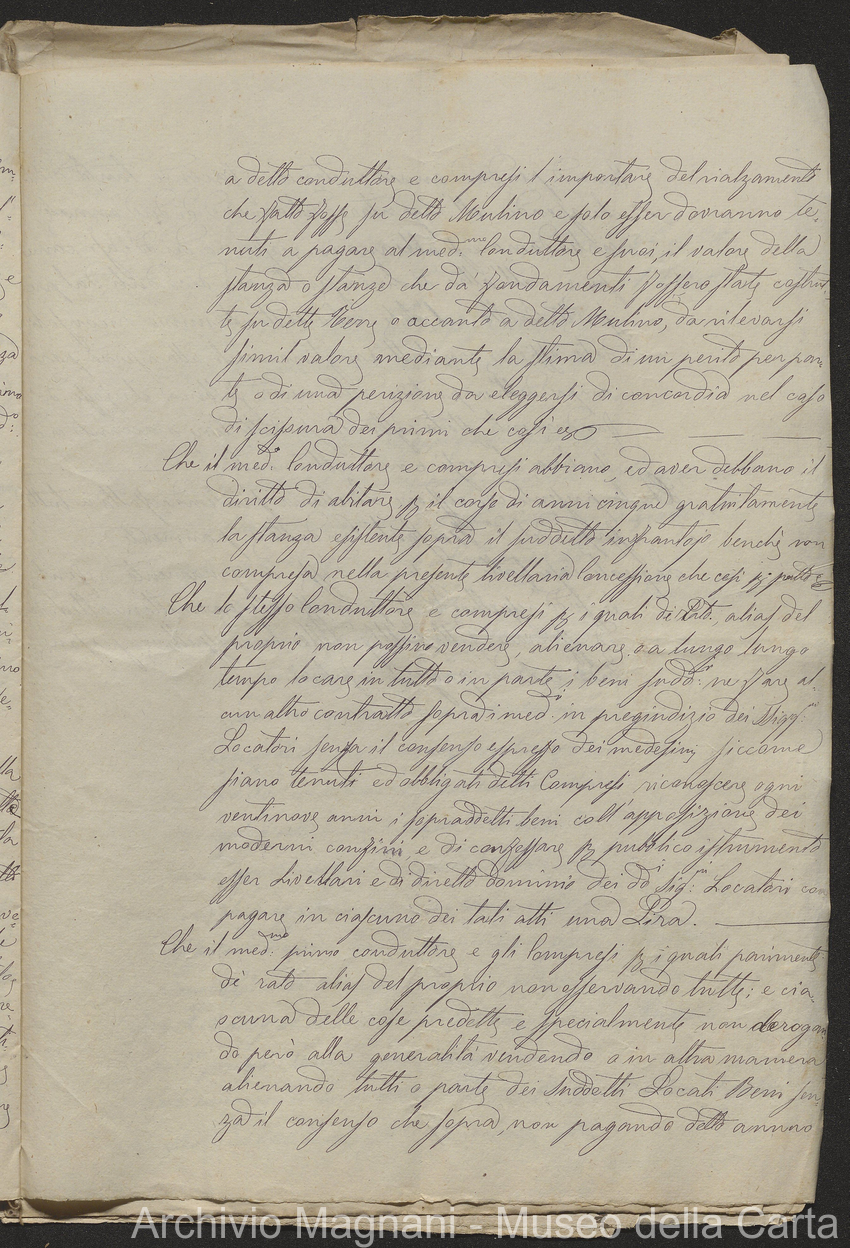 a detto conduttore e compresi l'importare del rialzamento
che fatto fosse su detto Mulino e solo esser dovranno te-
nuti a pagare al med:mo Conduttore e suoi, il valore della
stanza o stanze che da' fondamenti fossero state costrui-
te su dette Terre o accanto a detto Mulino, da rilevarsi
simil valore mediante la stima di un perito per par-
te o di una perizione da eleggersi di concordia nel caso
di scissura dei primi che così
Che il med:o Conduttore e compresi abbiano, ed aver debbano il
diritto di abitare p il corso di anni cinque gratuitamente
la stanza esistente sopra il suddetto infrantojo benchè non
compresa nella presente livellaria Concessione che così p patto
Che lo stesso Conduttore e compresi p i quali de Rato alias del
proprio non possino vendere, alienare o a lungo lungo
tempo locare in tutto o in parte i beni sudd:i ne fare al-
cun altro contratto sopra i med:i in pregiudizio dei Sigg:ri
Locatori senza il consenso espresso dei medesimi siccome
siano tenuti ed obbligati detti Compresi riconoscere ogni
ventinove anni i sopraddetti beni coll'apposizione dei
moderni confini e di confessare p pubblico istrumento
esser Livellari e di diretto dominio dei dd:i Sig:ri Locatori con
pagare in ciascuno dei tali atti una Lira.
Che il med:mo primo conduttore e gli Compresi p i quali parimente
dè rato alias del proprio non osservando tutte; e cia-
scuna delle cose predette e specialmente non derogan
do però alla generalità vendendo o in altra maniera
alienando tutti o parte dei suddetti Locati Beni sen-
za il consenso che sopra, non pagando detto annuo
Archivio Magnani - Museo della Carta